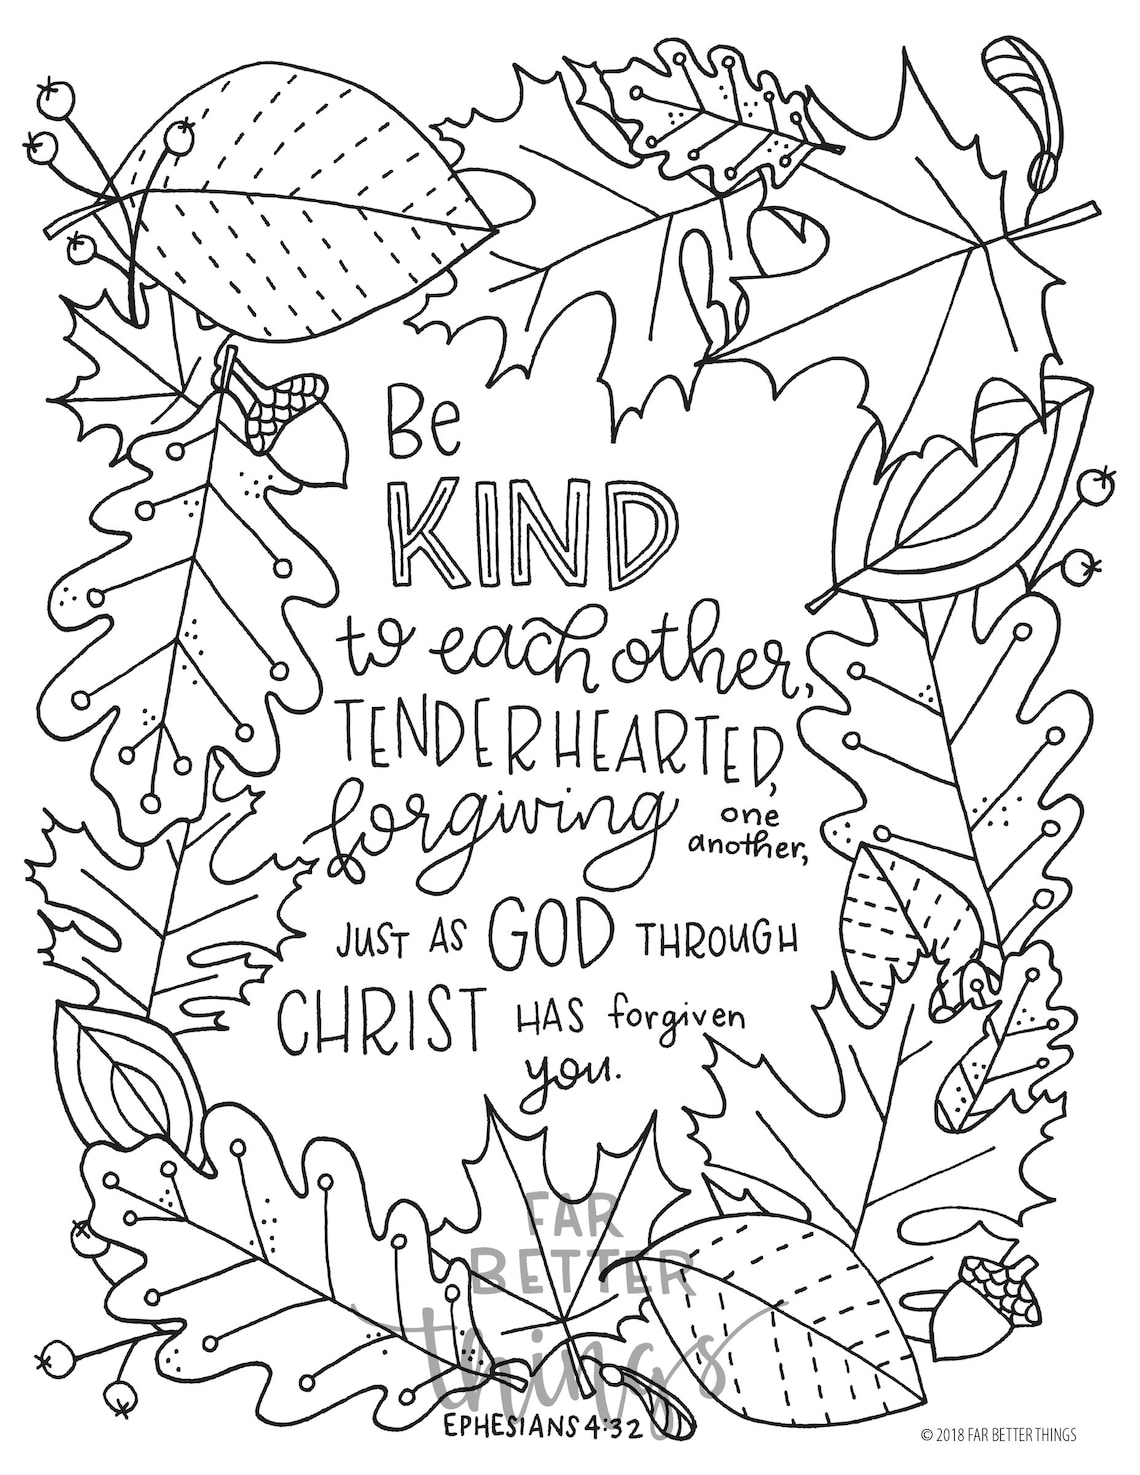 Be
KIND
to each other,
TENDERHEARTED,
forgiving one
another,
JUST AS GOD THROUGH
CHRIST HAS forgiven
you.
FAR
BETTER
things
EPHESIANS 4:32
© 2018 FAR BETTER THINGS